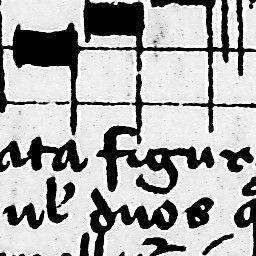 ata figur
ul' duos q